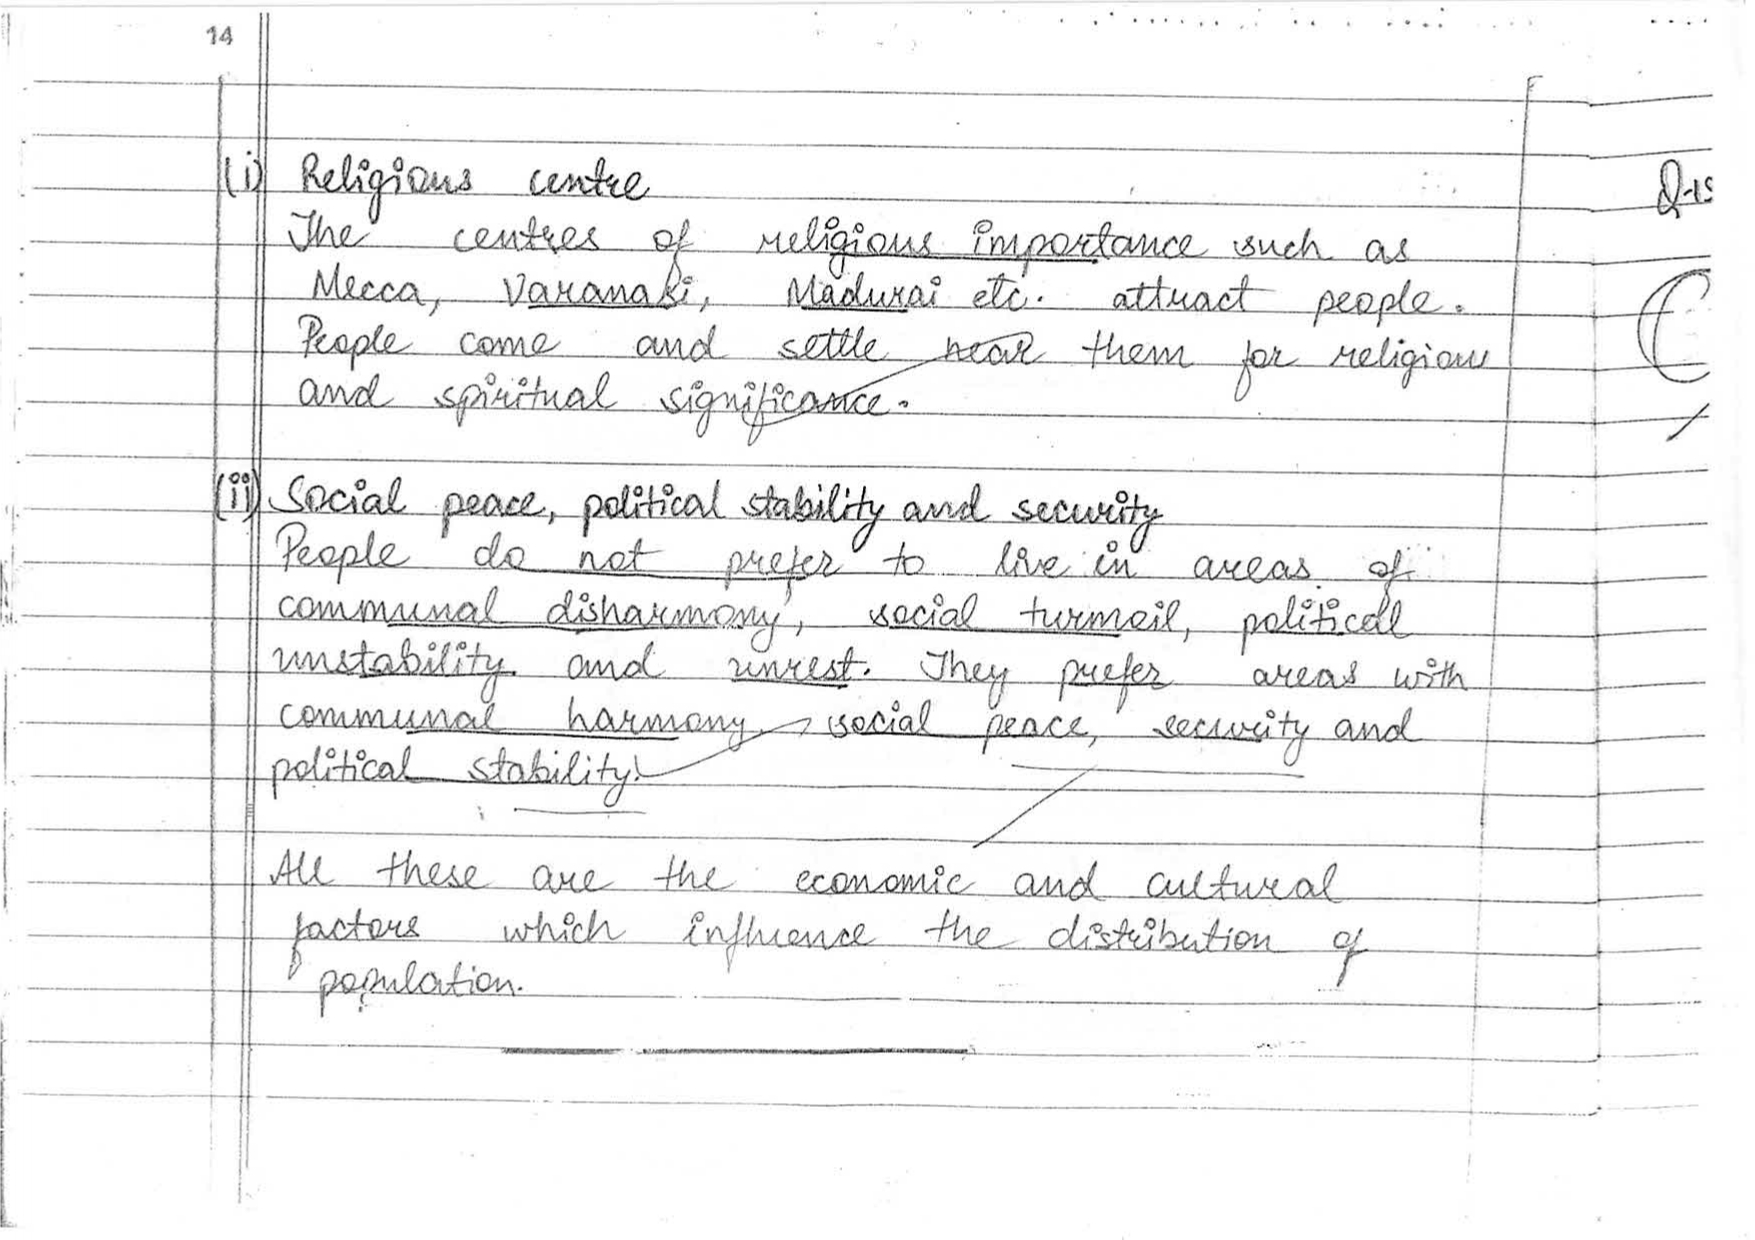 14
(i) Religious centre
The centres of religious importance such as
Mecca, Varanasi, Madurai etc. attract people.
People come and settle near them for religious
and spiritual significance.
(ii) Social peace, political stability and security
People do not prefer to live in areas of
communal disharmony, social turmoil, political
unstability and unrest. They prefer areas with
communal harmony, social peace, security and
political stability.
All these are the economic and cultural
factors which influence the distribution of
population.
Q-15